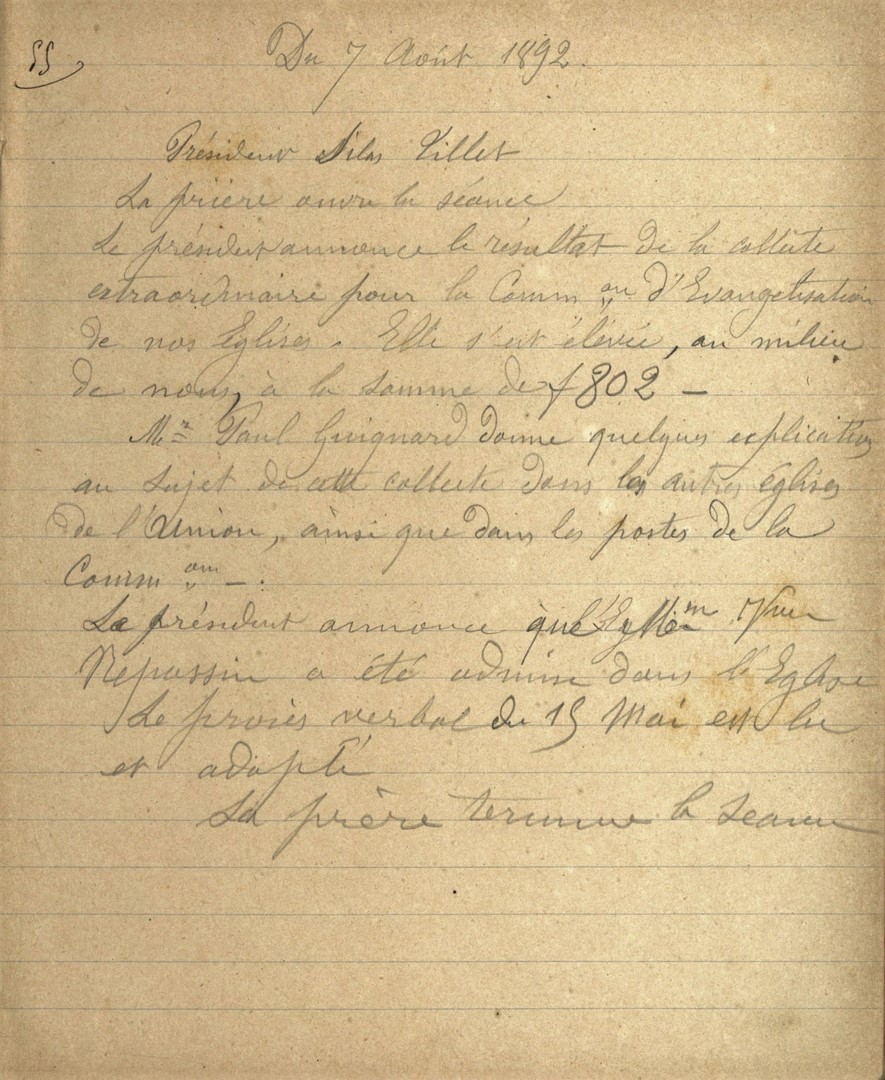 55
Du 7 Août 1892.
Président Silas Villet
La prière ouvre la séance
Le président annonce le résultat de la collecte
extraordinaire pour la Comm on d'Evangelisation
de nos Eglises. Elle s'est élevée, au milieu
de nous, à la somme de f 802 —
Mr Paul Guignard donne quelques explications
au sujet de cette collecte dans les autres églises
de l'Union, ainsi que dans les postes de la
Comm on —.
Le président annonce que
Repassin a été admise dans l'Eglise
Le procès verbal du 15 Mai est lu
et adopté
La prière termine la séance